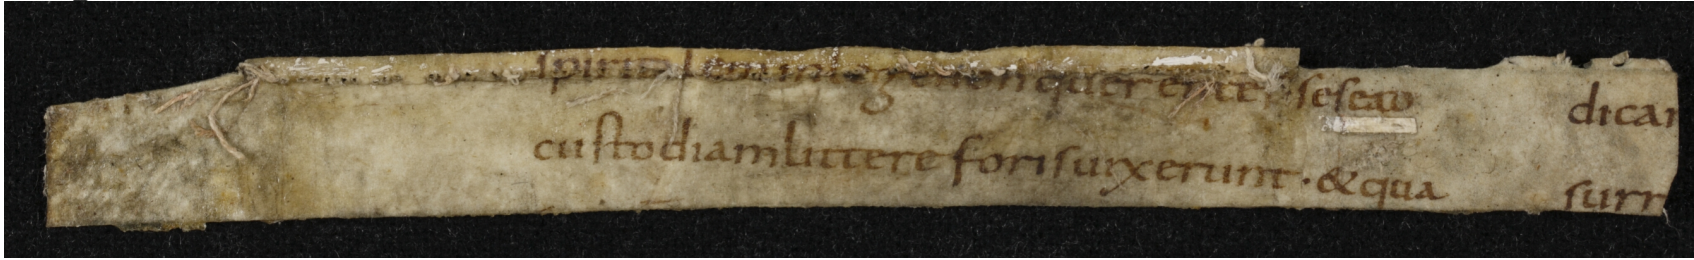 spiritalem inlege non querentes sesead
custodiam littere foris uixerunt · & qua
dicar
surr